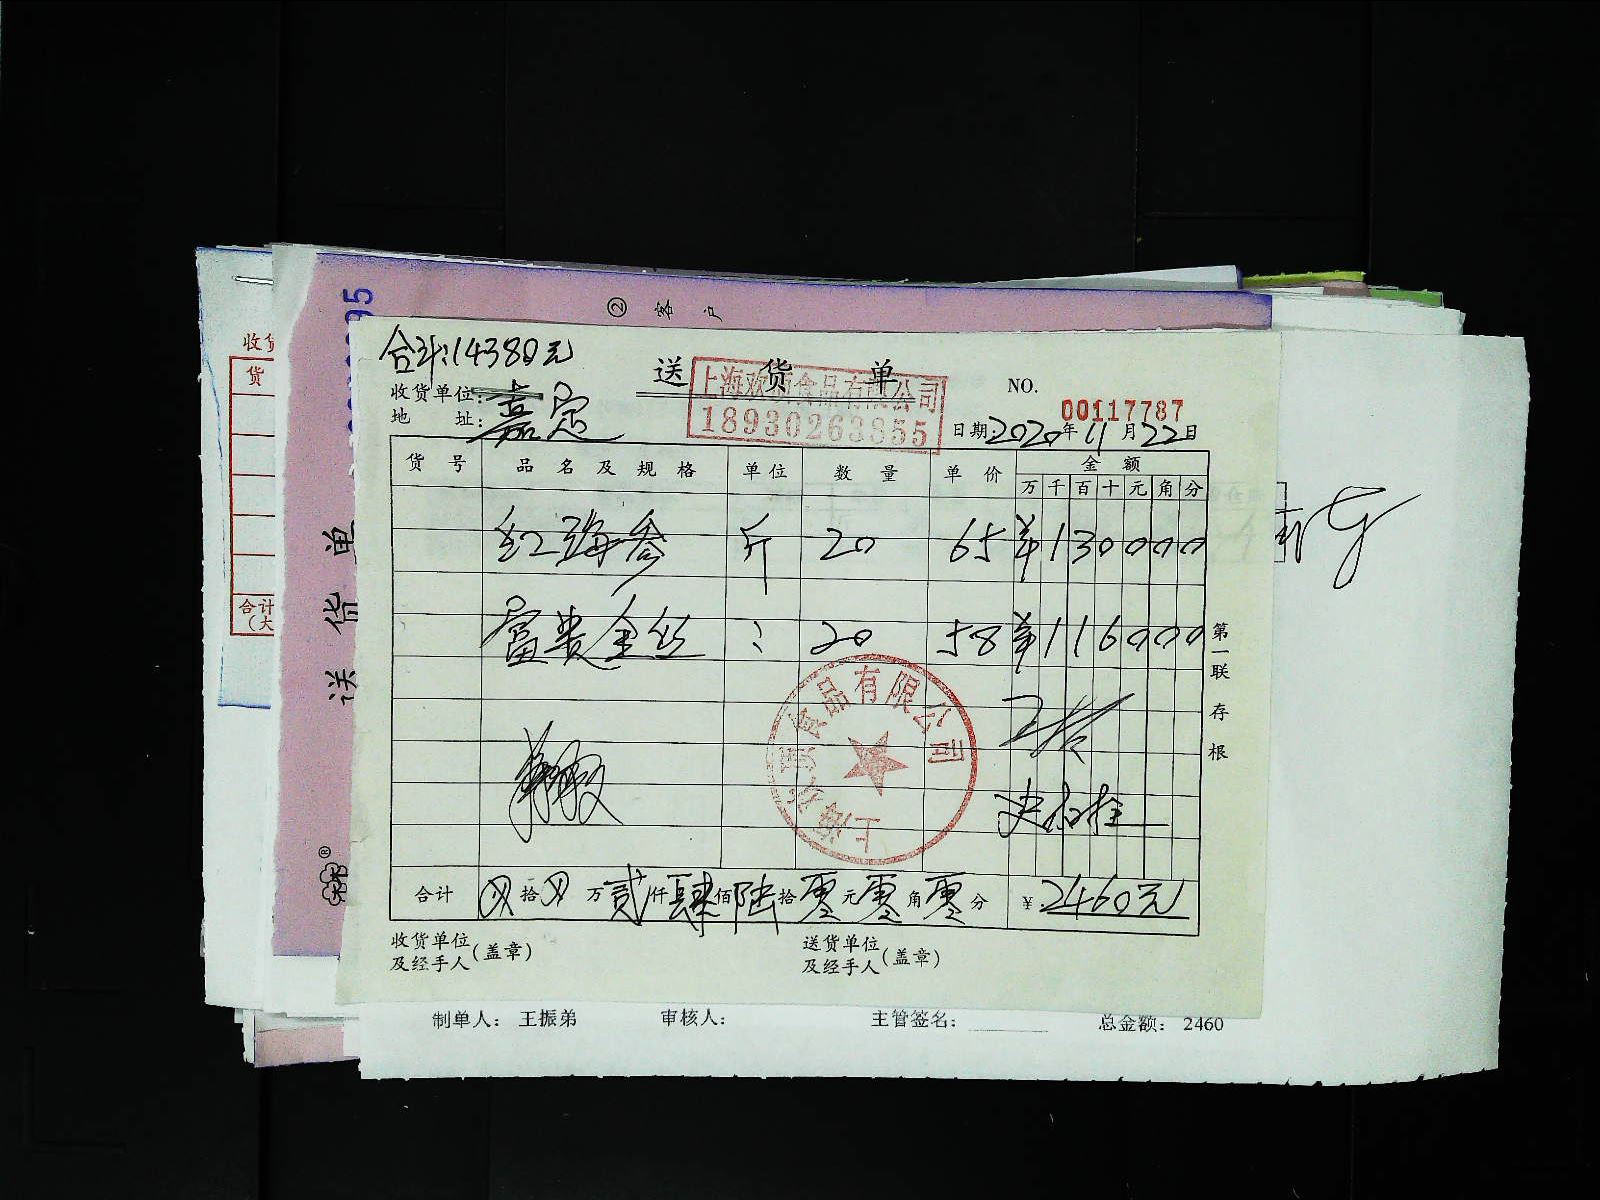 ② 客 户
合计:14380元
送 货 单
上海欢 食品有限公司
18930263355
NO.
00117787
收货单位:
地 址: 嘉定
日期:2020年11月22日
货 号 品 名 及 规 格 单 位 数 量 单 价 金 额
万 千 百 十 元 角 分
红海参 斤 20 65 ¥130000
富贵金丝 : 20 58 ¥116000
第一联 存根
上海 食品有限公司
合计 万 贰仟肆佰陆拾零元零角零分 ¥:2460元
收货单位
及经手人(盖章)
送货单位
及经手人(盖章)
制单人: 王振弟 审核人: 主管签名: 总金额: 2460
送 货 单
收货
货
合计
(大